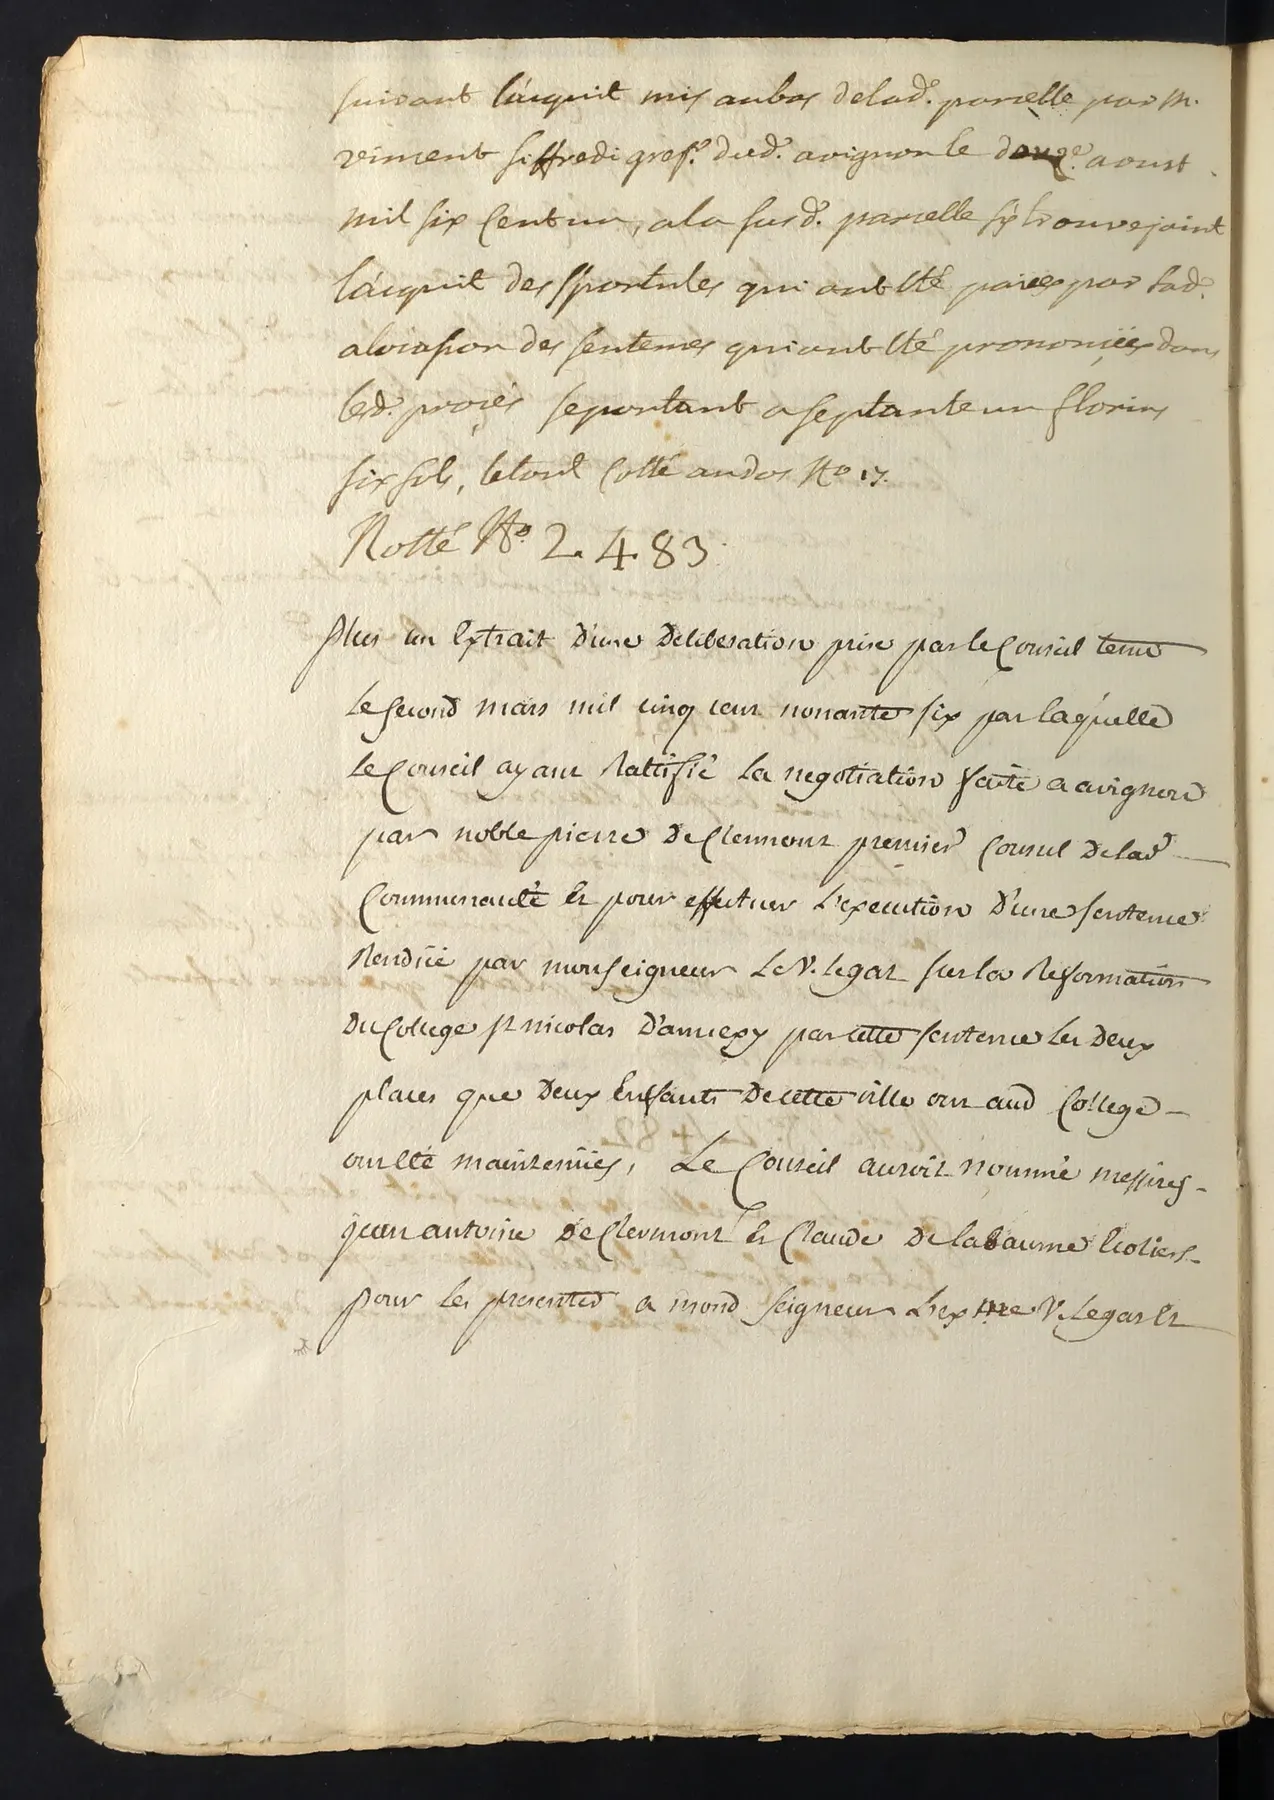 suivant l'acquit mis au bas de lad.e parcelle par M.
vincent siffredi gref.r dud. avignon le douze.e aoust
mil six cent un, a la susd.e parcelle s'y trouve joint
l'acquit des sportules qui ont eté paiées par lad.e
a l'ocasion des sentences qui ont eté prononcées dans
led. procés se portant a septante un florins
six sols, le tout cotté au dos N.o 17.
Notté N.o 2.483.
Plus un Extrait D'une Deliberation prise par le Conseil tenu
le second mars mil cinq cent nonante six par laquelle
le Conseil ayant Rattifié la negotiation faite a avignon
par noble pierre De Clermont premier Consul De lad
Communauté Et pour effectuer L'execution D'une sentence
Renduë par monseigneur Le V. legat sur la Reformation
Du College st nicolas D'annexy par cette sentence les Deux
places que Deux Enfants De cette ville ont aud College
ont eté maintenües, Le Conseil auroit nommé messires
jean antoine De Clermont Et Claude De la Baume Ecoliers
pour les presenter a mond seigneur L'ex.me V. Legat Et